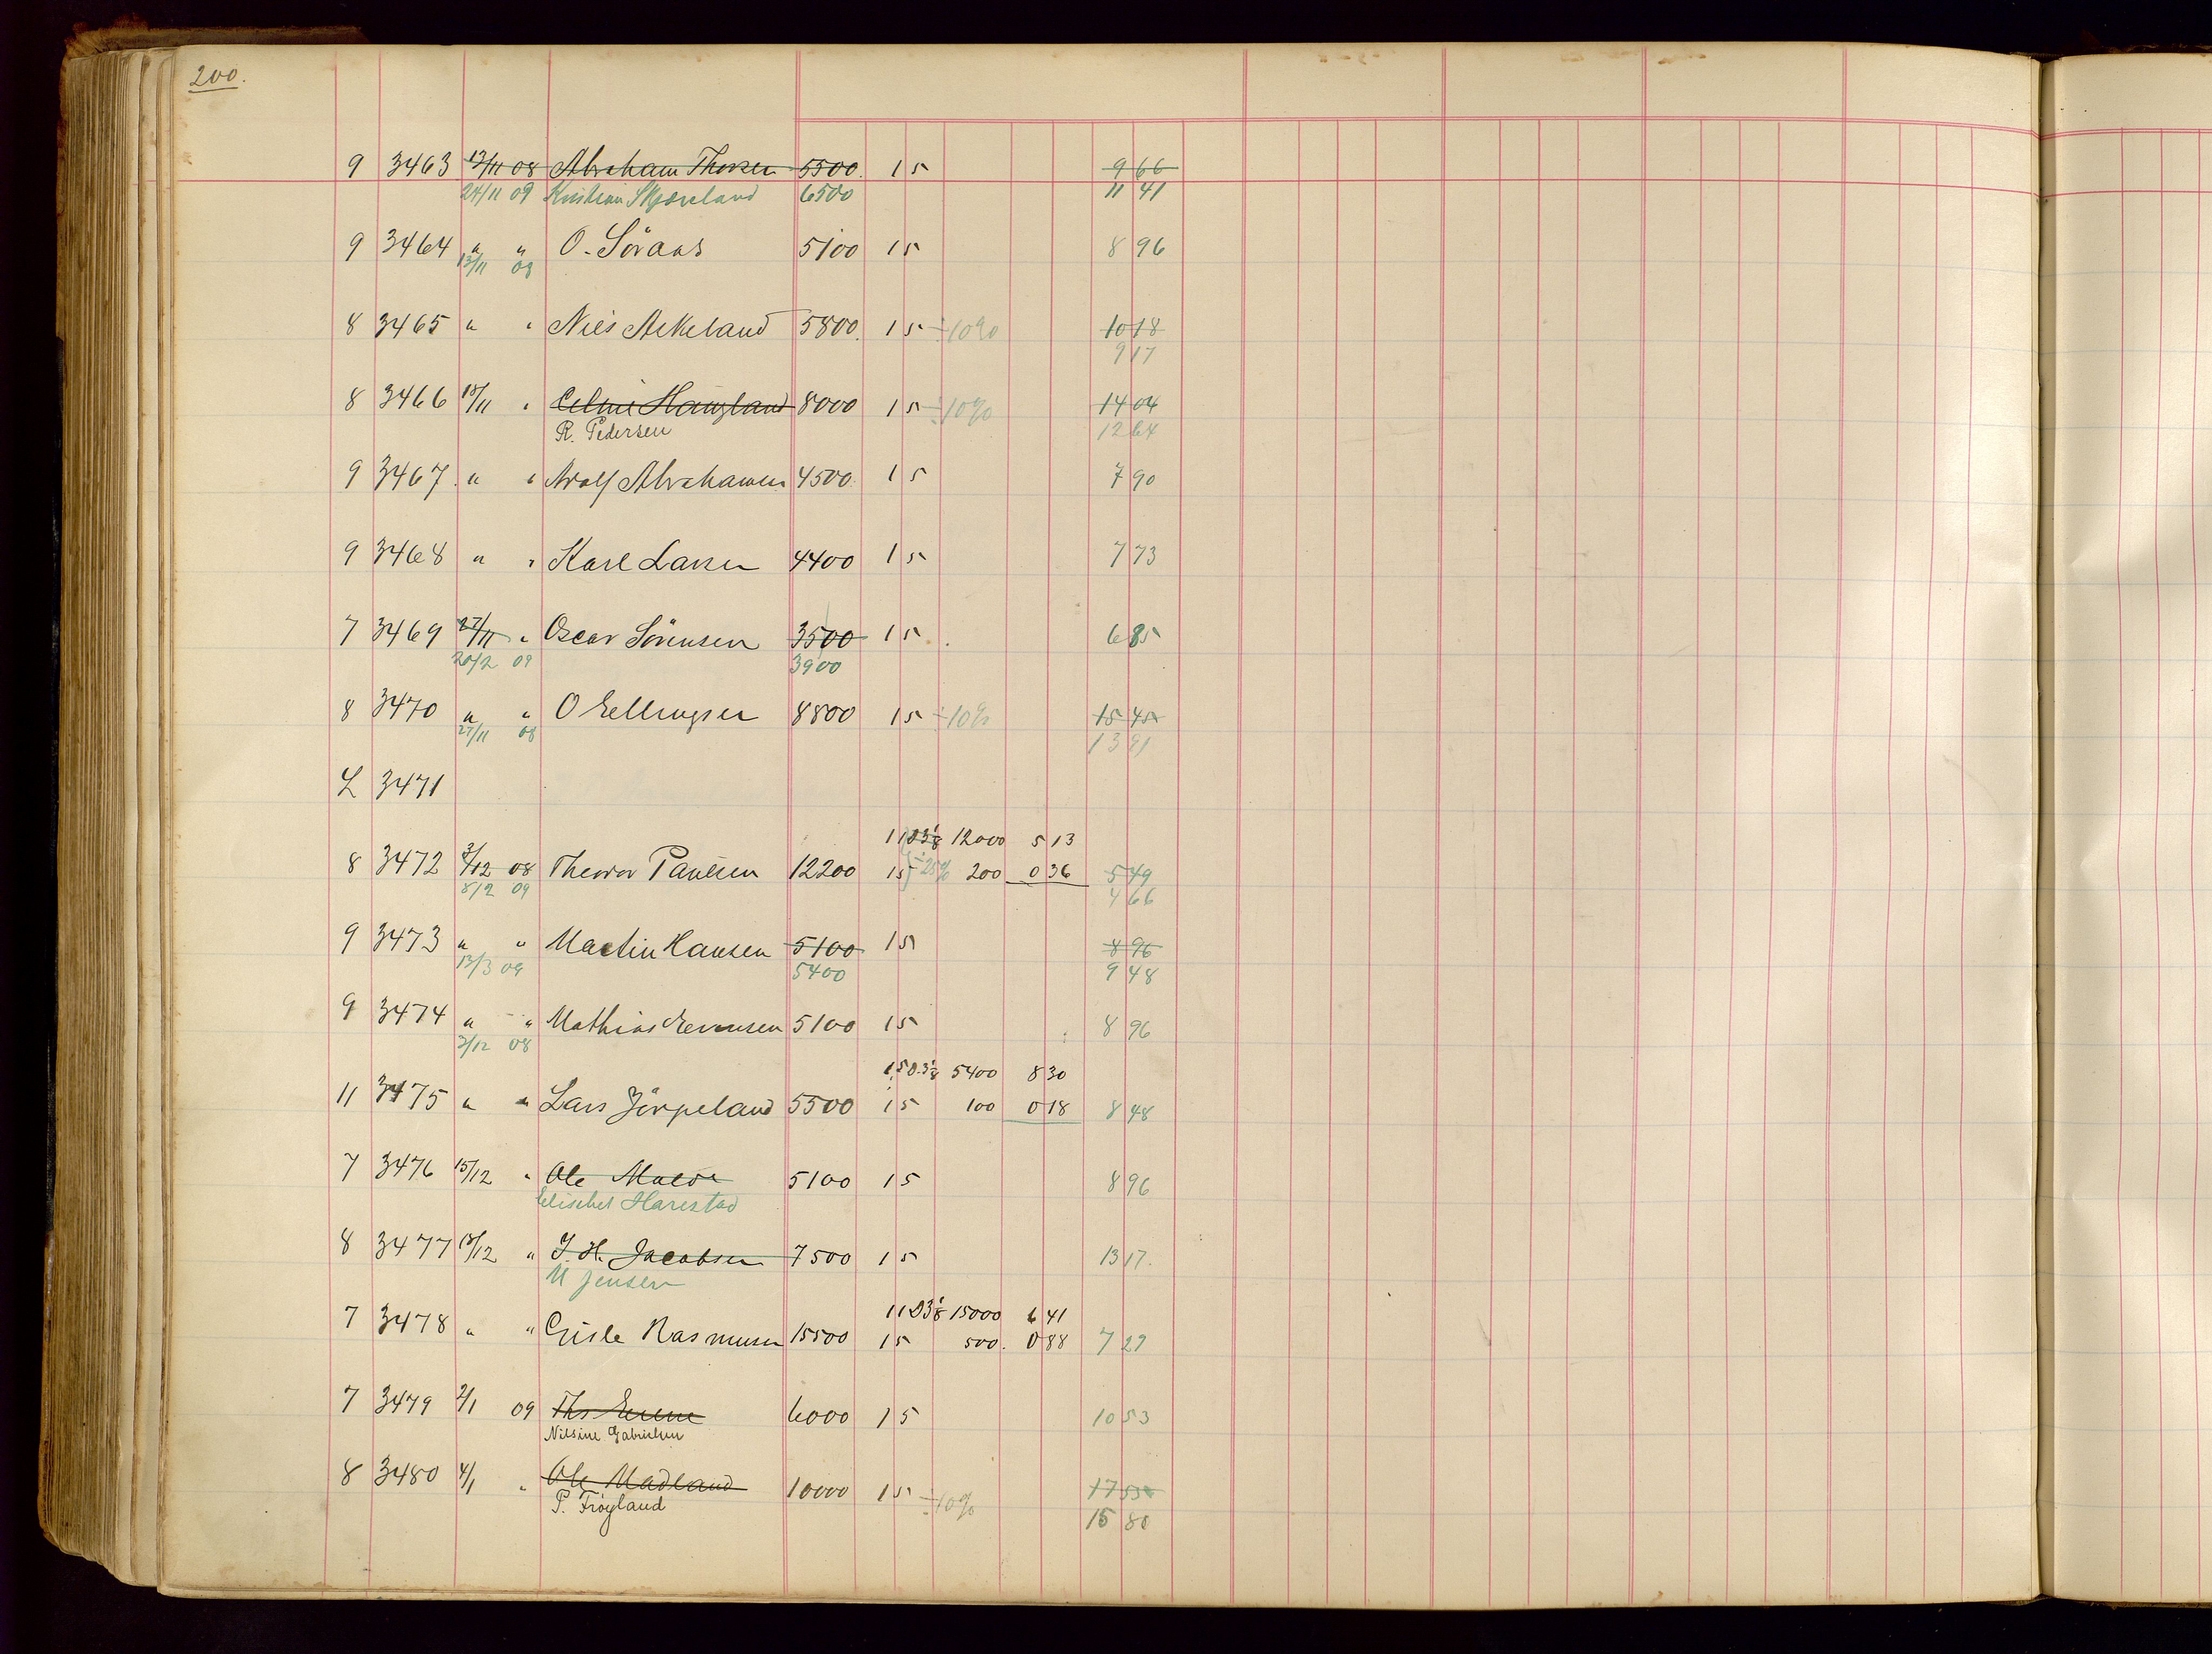 200.
9 3463 13/11 08 Abraham Thorsen 5500. 15 9 66
24/11 09 Kristian Skjøreland 6500 11 41
9 3464 " " O. Söraas 5100 15 8 96
13/11 08
8 3465 " " Nils Askeland 5800. 15 ÷10% 10 18
9 17
8 3466 18/11 " Celine Haugland 8000 15 ÷10% 14 04
R. Pedersen 12 64
9 3467. " " Adolf Abrahamsen 4500. 15 7 90
9 3468 " " Karl Larsen 4400 15 7 73
7 3469 27/11 " Oscar Sörensen 3500 15 6 85
20/2 09 3900
8 3470 " " O Eellingsen 8800 15 ÷10% 15 45
27/11 08 13 91
L 3471
11 D3⅛ 12000 5 13
8 3472 3/12 08 Theodor Paulsen 12200 15 ÷25% 200 0 36 5 49
8/2 09 4 66
9 3473 " " Martin Hansen 5100 15 8 96
13/3 09 5400 9 48
9 3474 " " Mathias Evensen 5100 15 8 96
3/12 08
15 D.3⅛ 5400 8 30
11 3475 " " Lars Jörpeland 5500 15 100 0 18 8 48
7 3476 15/12 " Ole Malde 5100 15 8 96
Elisabet Harestad
8 3477 18/12 " J. H. Jacobsen 7500 15 13 17.
M Jensen
11 D3⅛ 15000 6 41
7 3478 " " Gisle Rasmussen 15500 15 500. 0 88 7 29
7 3479 2/1 09 Ths 6000 15 10 53
Nilsine Gabrielsen
8 3480 4/1 " Ole Madland 10000 15 ÷10% 17 55
P. Fröyland 15 80